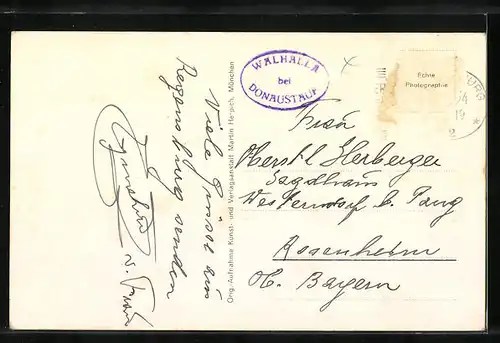 WALHALLA
bei
DONAUSTAUF
Echte
Photographie
Viele Grüsse aus
Regensburg senden
u. Frau
Orig.-Aufnahme Kunst- und Verlagsanstalt Martin Herpich, München
Frau
Herberger
Jagdhaus
Westerndorf b. Pang
Rosenheim
Ob. Bayern